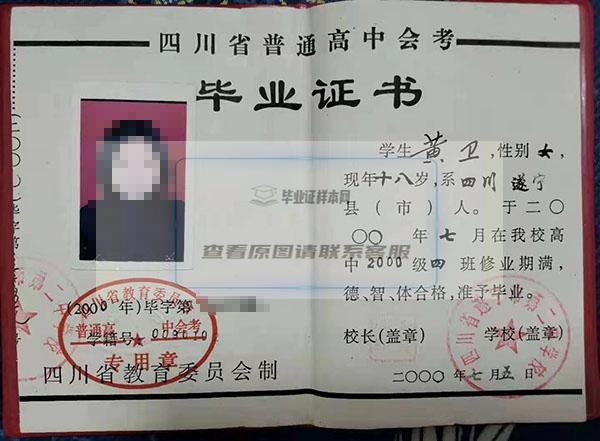 四川省普通高中会考
毕业证书
学生 黄卫,性别女,
现年十八岁,系四川遂宁
县(市)人。于二〇
〇〇年七月在我校高
中2000级四班修业期满,
德、智、体合格,准予毕业。
校长(盖章) 学校(盖章)
二〇〇〇年七月五日
毕业证样本网
查看原图请联系客服
四川省教育委员会
(2000年)毕字第
普通高中会考
学籍号
专用章
四川省教育委员会制